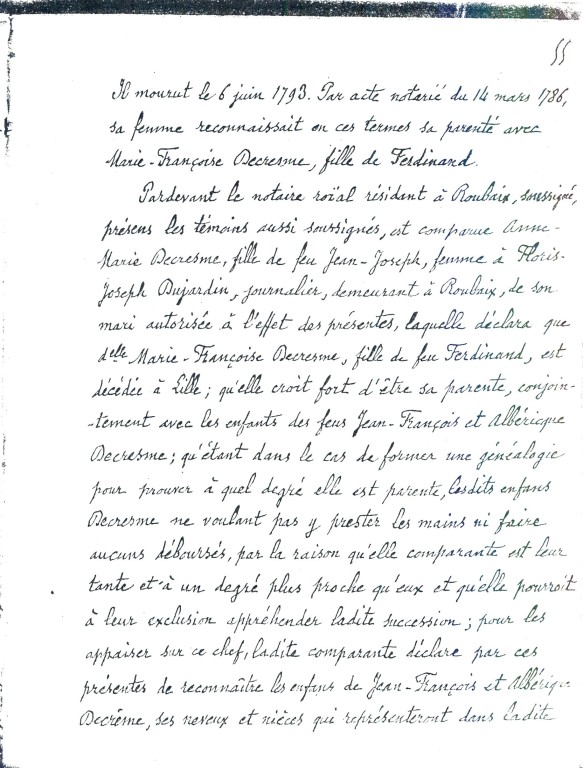 55
Il mourut le 6 juin 1793. Par acte notarié du 14 mars 1786,
sa femme reconnaissait en ces termes sa parenté avec
Marie-Françoise Decresme, fille de Ferdinand.
Pardevant le notaire roïal résidant à Roubaix, soussigné,
présens les témoins aussi soussignés, est comparue Anne-
Marie Decresme, fille de feu Jean-Joseph, femme à Floris-
Joseph Dujardin, journalier, demeurant à Roubaix, de son
mari autorisée à l'effet des présentes, laquelle déclara que
delle Marie-Françoise Decresme, fille de feu Ferdinand, est
décédée à Lille ; qu'elle croit fort d'être sa parente, conjoin-
-tement avec les enfants des feus Jean-François et Albéricque
Decresme ; qu'étant dans le cas de former une généalogie
pour prouver à quel degré elle est parente, lesdits enfans
Decresme ne voulant pas y prester les mains ni faire
aucuns déboursés, par la raison qu'elle comparante est leur
tante et à un degré plus proche qu'eux et qu'elle pourroit
à leur exclusion appréhender ladite succession ; pour les
appaiser sur ce chef, ladite comparante déclare par ces
présentes de reconnaître les enfans de Jean-François et Albérique
Decrême, ses neveux et nièces qui représenteront dans ladite